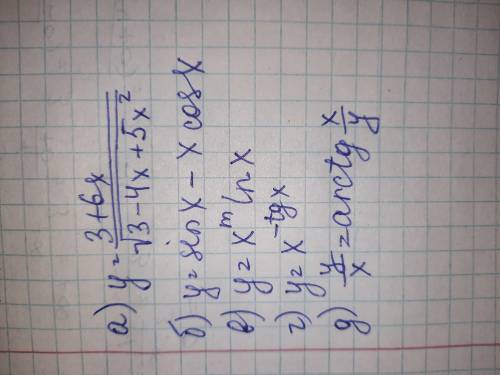 а) y = (3+6x)/√(3-4x+5x²)
б) y = sin x - x cos x
в) y = x^m ln x
г) y = x^(-tg x)
д) y/x = arctg x/y